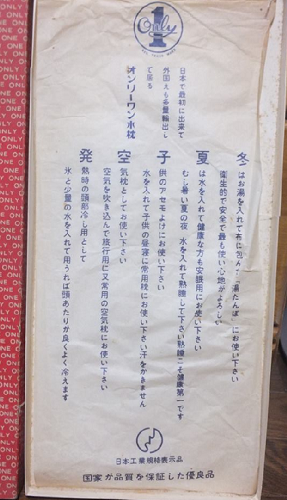 Only
1
日本で最初に出来て
外国えも多量輸出し
て居る
オンリーワン水枕
冬 はお湯を入れて布に包んだ「湯たんぽ」にお使い下さい
衛生的で安全で最も使い心地がよろしい
夏 は水を入れて健康な方も安眠用にお使い下さい
むし暑い夏の夜、水を入れて熟睡して下さい熟睡こそ健康第一です
子 供のアセモよけにお使い下さい
水を入れて子供の昼寝に常用枕にお使い下さい汗をかきません
空 気枕としてお使い下さい
空気を吹き込んで旅行用に又常用の空気枕にお使い下さい
発 熱時の頭部冷し用として
氷と少量の水を入れて用うれば頭あたりが良くよく冷えます
日本工業規格表示品
国家が品質を保証した優良品
ONLY ONE ONLY ONE